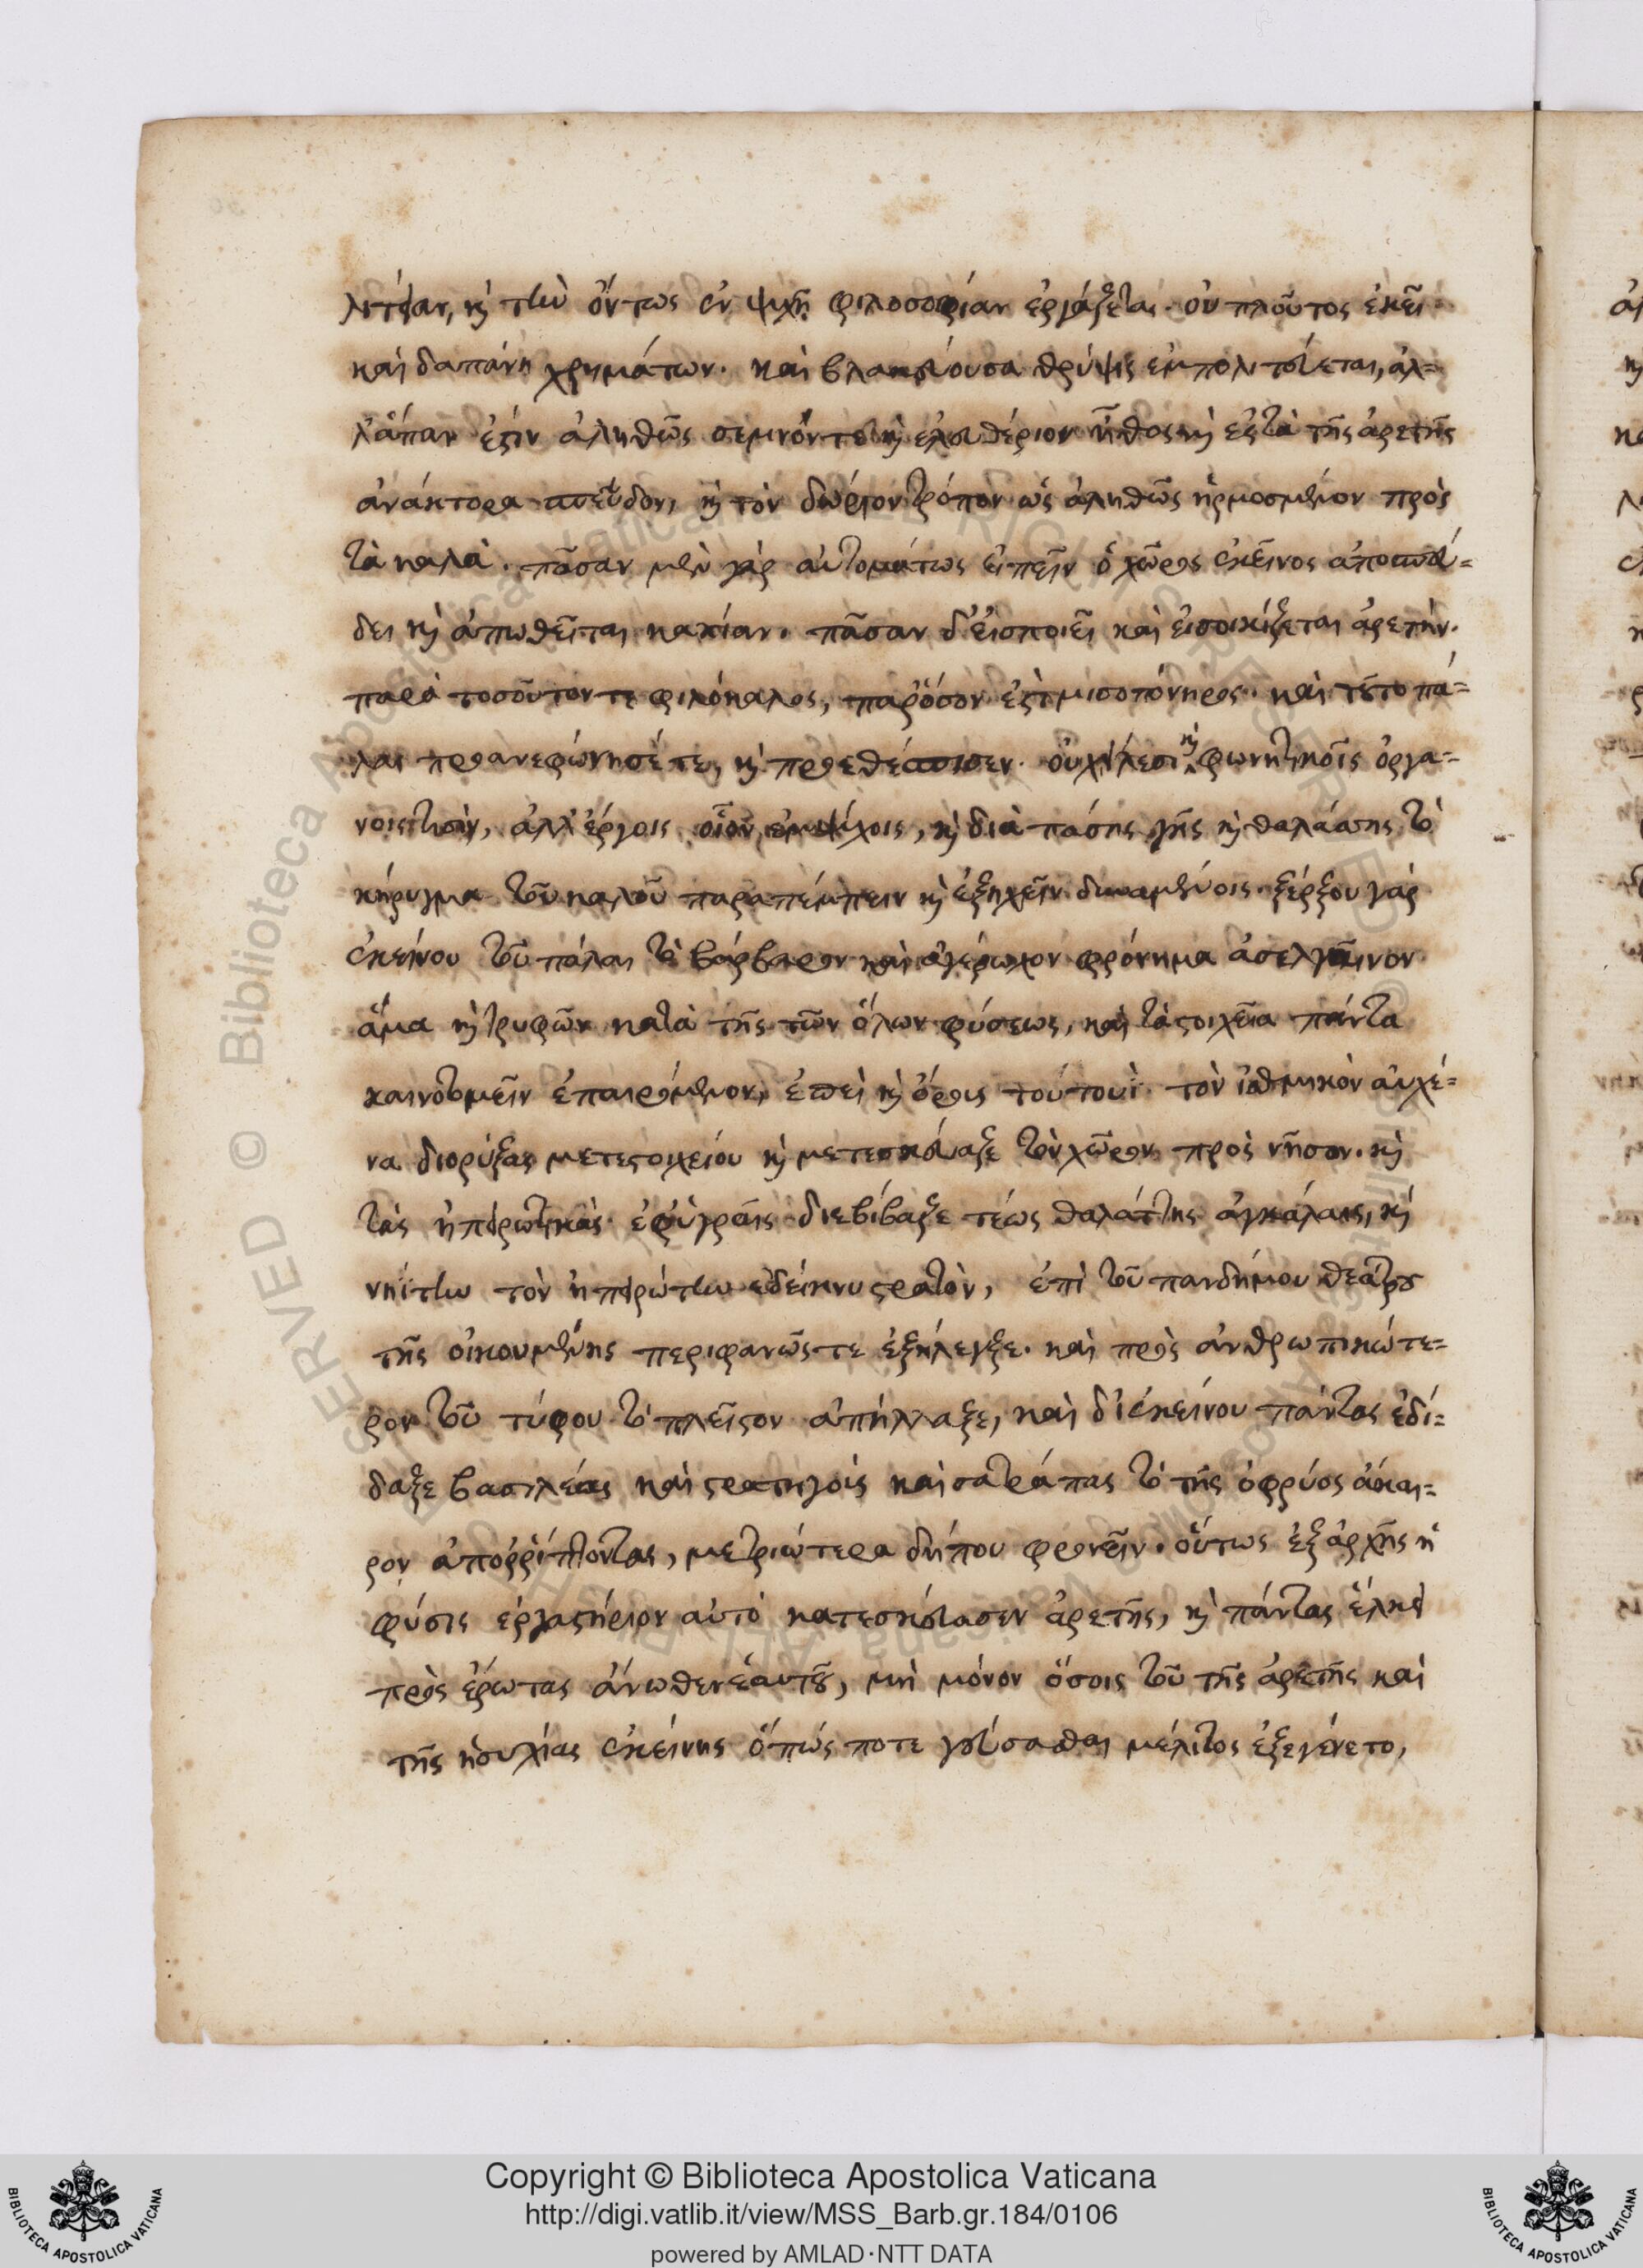 λιτείαν, καὶ τὴν ὄντως ἐν ψυχῇ φιλοσοφίαν ἐργάζεται. οὐ πλοῦτος ἐκεῖ
καὶ δαπάνη χρημάτων. καὶ βλακεύουσα θρύψις ἐμπολιτεύεται, ἀλ=
λ' ἅπαν ἐστὶν ἀληθῶς σεμνόν τε καὶ ἐλευθέριον ἦθος καὶ ἐς τὰ τῆς ἀρετῆς
ἀνάκτορα σπεῦδον, καὶ τὸν δώριον τρόπον ὡς ἀληθῶς ἡρμοσμένον πρὸς
τὰ καλά. πᾶσαν μὲν γὰρ αὐτομάτως εἰπεῖν ὁ χῶρος ἐκεῖνος ἀποσπεύ=
δει καὶ ἀπωθεῖται κακίαν. πᾶσαν δ' εἰσποιεῖ καὶ εἰσοικίζεται ἀρετήν.
παρὰ τοσοῦτόν τε φιλόκαλος, παρ' ὅσον ἐστὶ μισοπόνηρος. καὶ τοῦτο πά=
λαι προανεφώνησέ τε, καὶ προεθέσπισεν. οὐ χείλεσι καὶ φωνητικοῖς ὀργά=
νοις τισὶν, ἀλλ' ἔργοις οἷον ἐμψύχοις, καὶ διὰ πάσης γῆς καὶ θαλάσσης τὸ
κήρυγμα τοῦ καλοῦ παραπέμπειν καὶ ἐξηχεῖν δυναμένοις. ξέρξου γὰρ
ἐκείνου τοῦ πάλαι τὸ βάρβαρον καὶ ἀγέρωχον φρόνημα ἀσελγαῖνον
ἅμα καὶ τρυφῶν κατὰ τῆς τῶν ὅλων φύσεως, καὶ τὰ στοιχεῖα πάντα
καινοτομεῖν ἐπαιρόμενον, ἐπεὶ καὶ ὄρους τουτουὶ τὸν ἰσθμικὸν αὐχέ=
να διορύξας μετεστοιχείου καὶ μετεσκεύαζε τὸν χῶρον πρὸς νῆσον. καὶ
τὰς ἠπειρωτικὰς ἐφ' ὑγραῖς διεβίβαζε τέως θαλάττης ἀγκάλαις, καὶ
νηΐτην τὸν ἠπειρώτην ἐδείκνυ στρατὸν, ἐπὶ τοῦ πανδήμου θεάτρου
τῆς οἰκουμένης περιφανῶς τε ἐξήλεγξε. καὶ πρὸς ἀνθρωπικώτε=
ρον τοῦ τύφου τὸ πλεῖστον ἀπήλλαξε, καὶ δι' ἐκείνου πάντας ἐδί=
δαξε βασιλέας καὶ στρατηγοὺς καὶ σατράπας τὸ τῆς ὀφρύος ἄκαι=
ρον ἀποῤῥίπτοντας, μετριώτερα δήπου φρονεῖν. οὕτως ἐξ ἀρχῆς ἡ
φύσις ἐργαστήριον αὐτὸ κατεσκεύασεν ἀρετῆς, καὶ πάντας ἕλκει
πρὸς ἔρωτας ἄνωθεν ἑαυτοῦ, μὴ μόνον ὅσοις τοῦ τῆς ἀρετῆς καὶ
τῆς ἡσυχίας ἐκείνης ὅπώς ποτε γεύσασθαι μέλιτος ἐξεγένετο,
Copyright © Biblioteca Apostolica Vaticana
http://digi.vatlib.it/view/MSS_Barb.gr.184/0106
powered by AMLAD·NTT DATA